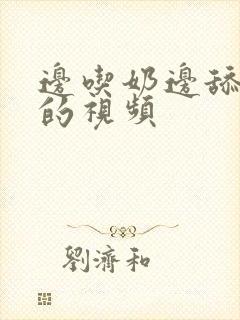 邊喫奶邊舔
的視頻
劉濟和